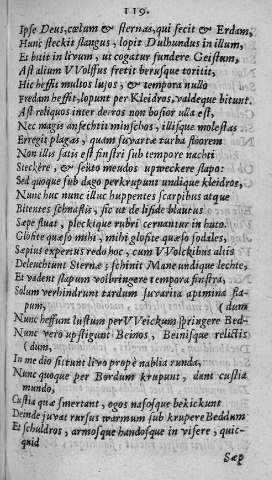 119.
Ipse Deus, cœlum & sternas, qui fecit & Erdam,
Hunc steckit slangus, lopit Dulhundus in illum,
Et bitit in livum, ut cogatur fundere Geistum,
Ast alium VVolfsus fretit berusque toritit,
Hic heffit multos lujos, & tempora nullo
Fredam heffit, lopunt per Kleidros, valdeque bitunt.
Ast reliquos inter deiros non bosior ulla est,
Nec magis anfechtit minschos, illisque molestas
Erregit plagas, quam suvartæ turba floorem
Non illis satis est finstri sub tempore nachti
Steckere, & seuto meudos upweckere slapo:
Sed quoque sub dago perkrupunt undique kleidros,
Nunc huc nunc illuc huppentes scarpibus atque
Bitentes schnaflis, sic ut de lifide blautus
Sæpe fluat, pleckique rubri cernantur in huto.
Glofite quæso mihi, mihi glofite quæso sodales,
Sæpius expertus redo hoc, cum VVolckibus altis
Deleuchtunt Sternæ; schinit Mane undique lechte,
Et vadent slapum volbringere tempora finstra,
Solum verhindrunt tardum suvarita agmina sla-
pum, (dum
Nunc heffunt lustum per VVeickum springere Bed-
Nunc vero upstigunt Beinos, Beinisque relictis
(dum,
In me dio sittunt livo propè nablia runda,
Nunc quoque per Bordum krupunt, dant custia
mundo,
Custia quæ smertant, ogos nasosque bekickunt
Deinde juvat rursus warmum sub krupere Beddum
Et schuldros, armosque handosque in visere, quic-
quid
Sæp